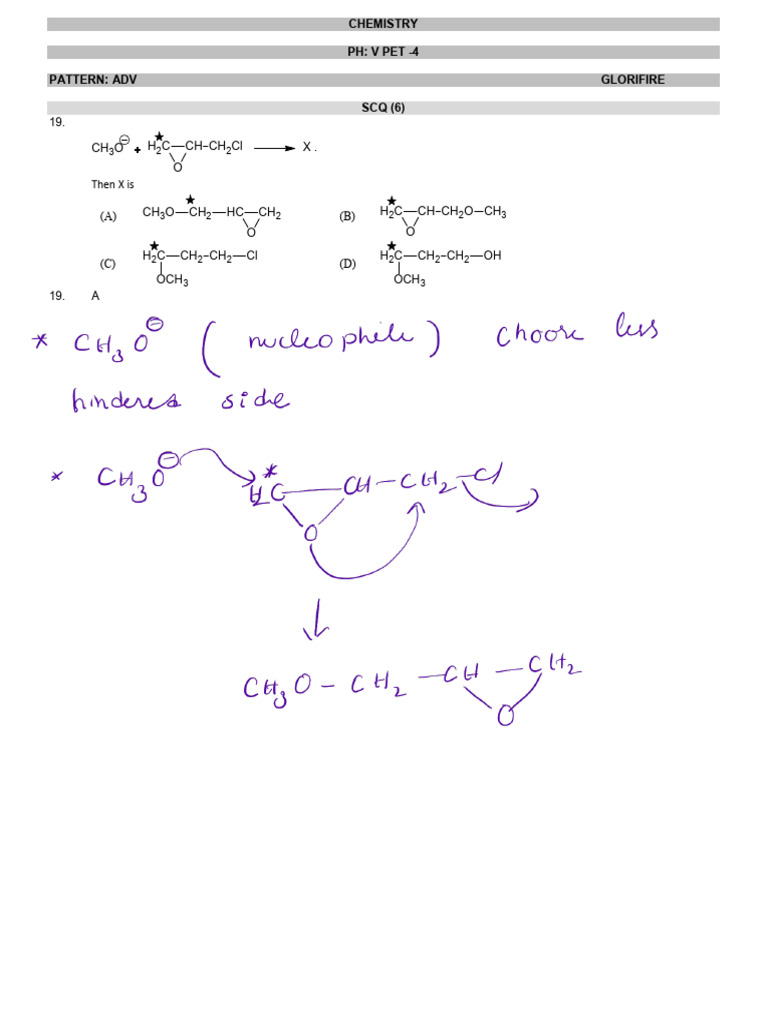 CHEMISTRY
PH: V PET -4
PATTERN: ADV GLORIFIRE
SCQ (6)
19.
CH₃O⊖ + H₂C★—CH–CH₂Cl ⟶ X .
O
Then X is
(A) CH₃O—CH₂★—HC—CH₂ (B) H₂C★—CH–CH₂O–CH₃
O O
(C) H₂C★—CH₂–CH₂—Cl (D) H₂C★—CH₂–CH₂—OH
OCH₃ OCH₃
19. A
* CH₃O⊖ (nucleophile) choose less
hinderes side
* CH₃O⊖ H₂C*—CH–CH₂–Cl
O
↓
CH₃O – CH₂ – CH – CH₂
O